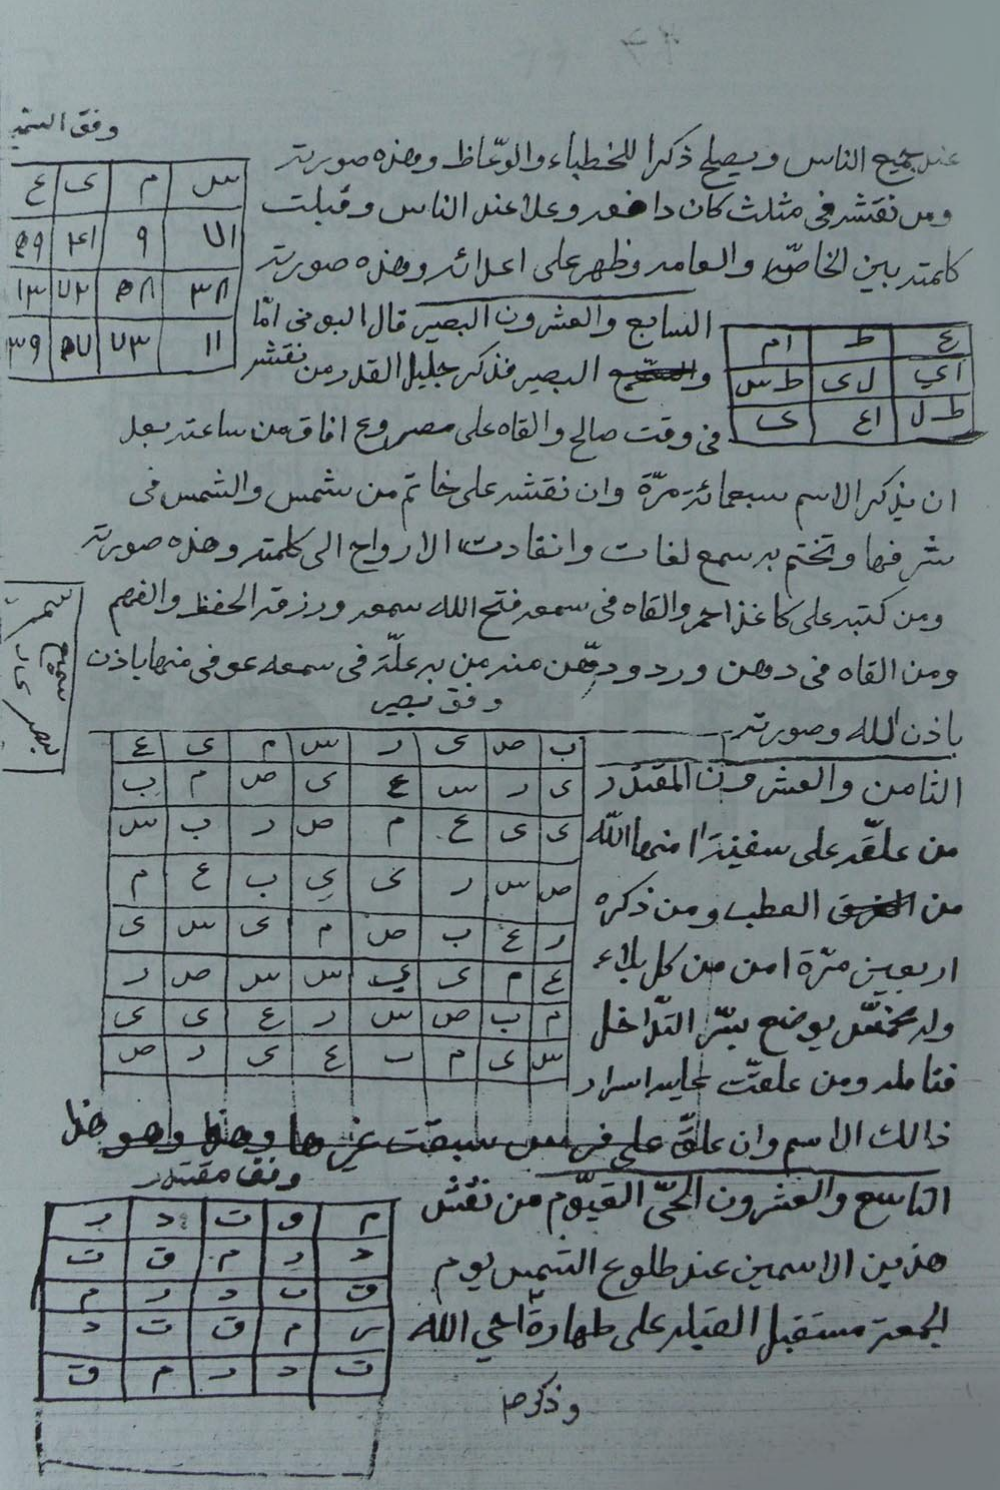 وفق السميع
عند جميع الناس ويصلح ذكرا للخطباء والوعّاظ وهذه صورته
س م ى ع
٧١ ٩ ٤١ ٥٩
٣٨ ٥٨ ٧٢ ١٢
١١ ٧٣ ٥٧ ٣٩
ومن نقشه في مثلث كان وعلا عند الناس وقبلت
كلمته بين الخاصّه والعامه وظهر على اعدائه وهذه صورته
السابع والعشرون البصير قال البوني امّا
ع ط ام
اي ل ى ط س
ط ل اع ى
البصير فذكر جليل القدر من نقشه
في وقت صالح والقاه على مصروع افاق من ساعته بعد
ان يذكر الاسم سبعمائة مرّة وان نقشه على خاتم من شمس والشمس في
شرفها وتختم به سمع لغات وانقادت الارواح الى كلمته وهذه صورته
ومن كتبه على كاغذ احمر والقاه في سمعه فتح الله سمعه ورزقه الحفظ والفهم
ومن القاه في دهن ورد ودهّن منه من به علّة في سمعه عوفى منها باذن
سميع
وفق بصير
باذن الله وصورته
ب ص ى ر س م ى ع
ى ر س ع ى ص م ب
ى ى ع م ص ر ب س
ص س ر ى ي ب ع م
ر ع ب ص م ى س ى
ع م ى ي س س ص ر
م ب ص س ر ع ى ى
س ى م ب ع ى ر ص
الثامن والعشرون المقتدر
من علّقه على سفينة امنها الله
من الغرق العطب ومن ذكره
اربعين مرّة امن من كل بلاء
وله مخمّس يوضع بسّر التداخل
فتامله ومن علقت عليه اسرار
ذالك الاسم وان علق على فرس سبقت غيرها وهذا وهو هذا
وفق مقتدر
م ق ت د ر
د ر م ق ت
ق ت د ر م
ر م ق ت د
ت د ر م ق
التاسع والعشرون الحيّ القيّوم من نقش
هذين الاسمين عند طلوع الشمس يوم
الجمعة مستقبل القبله على طهارة احي الله
وذكره